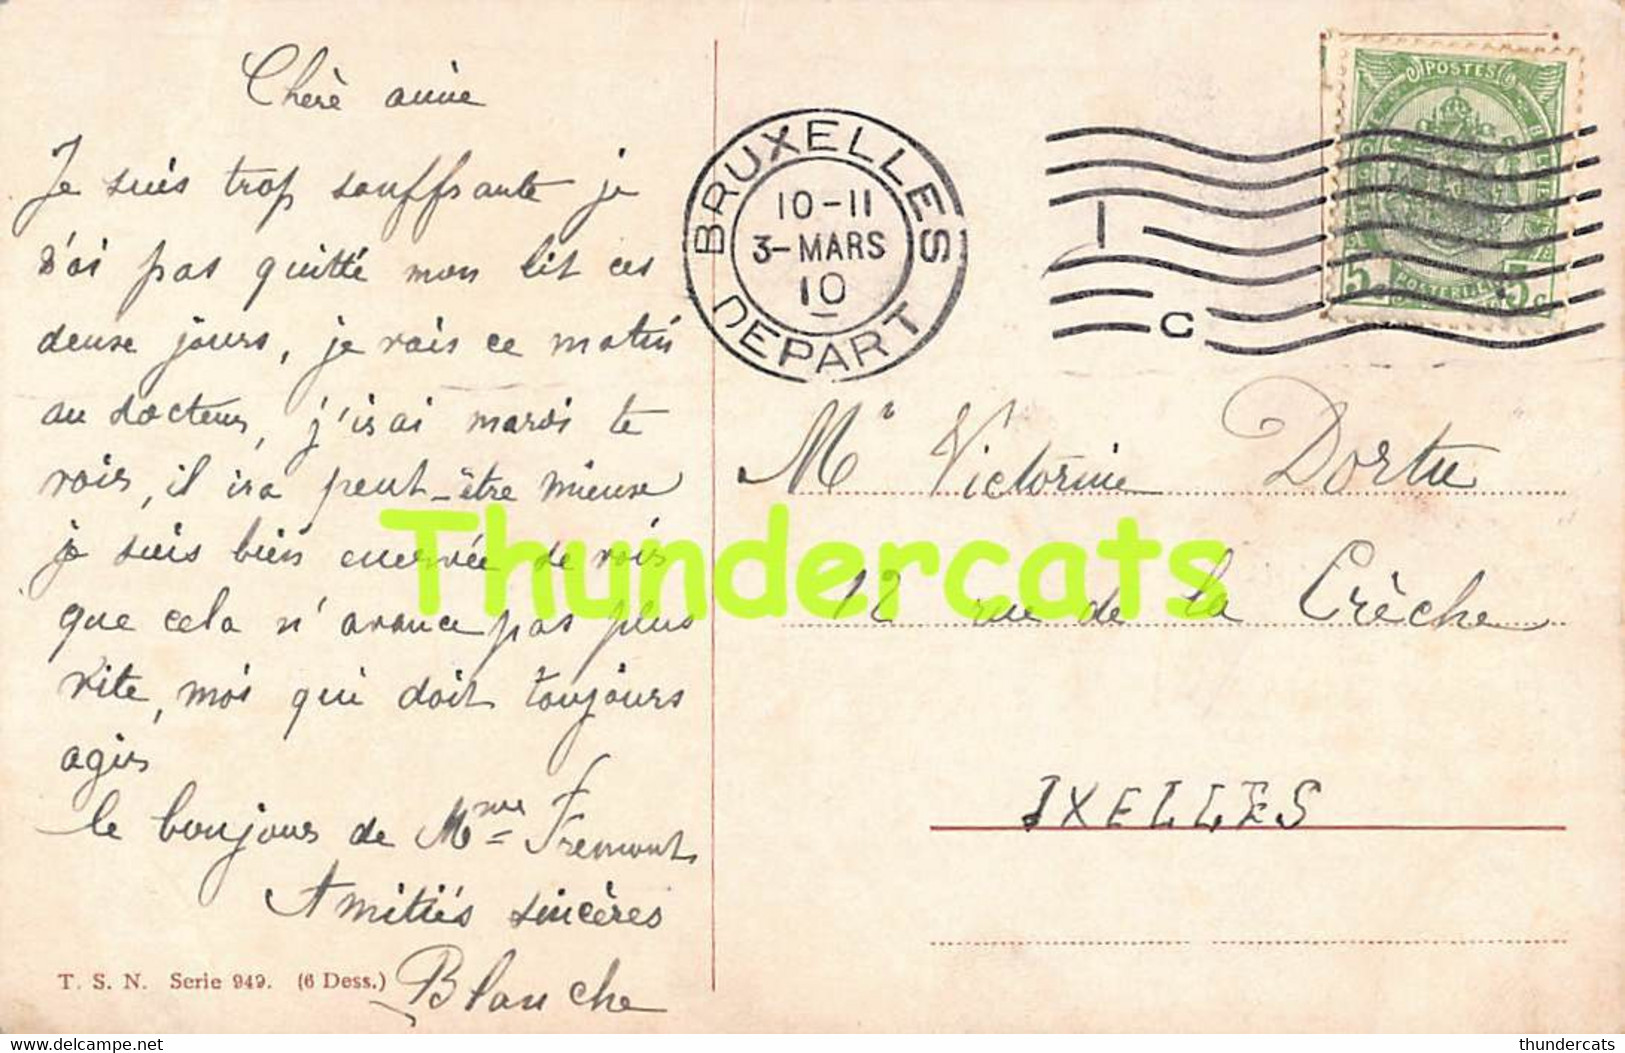 Chère amie
Je suis trop souffrante je
n'ai pas quitté mon lit ces
deux jours, je vais ce matin
au docteur, j'irai mardi te
voir, il ira peut-être mieux
je suis bien enervée de voir
que cela n'avance pas plus
vite, moi qui doit toujours
agir
le bonjour de Mme Fremont
Amitiés sincères
Blanche
T. S. N. Serie 949. (6 Dess.)
BRUXELLES
10-11
3-MARS
10
DEPART
1
C
POSTES
5c 5c
Mr Victorine Dortu
12 rue de la Crèche
IXELLES
Thundercats
delcampe.net
thundercats